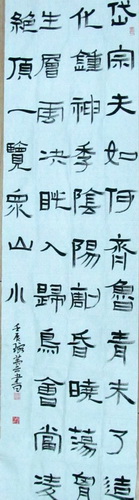 岱宗夫如何齊魯青未了造
化鐘神秀陰陽割昏曉蕩胷
生層雲決眥入歸鳥會當凌
絕頂一覽衆山小